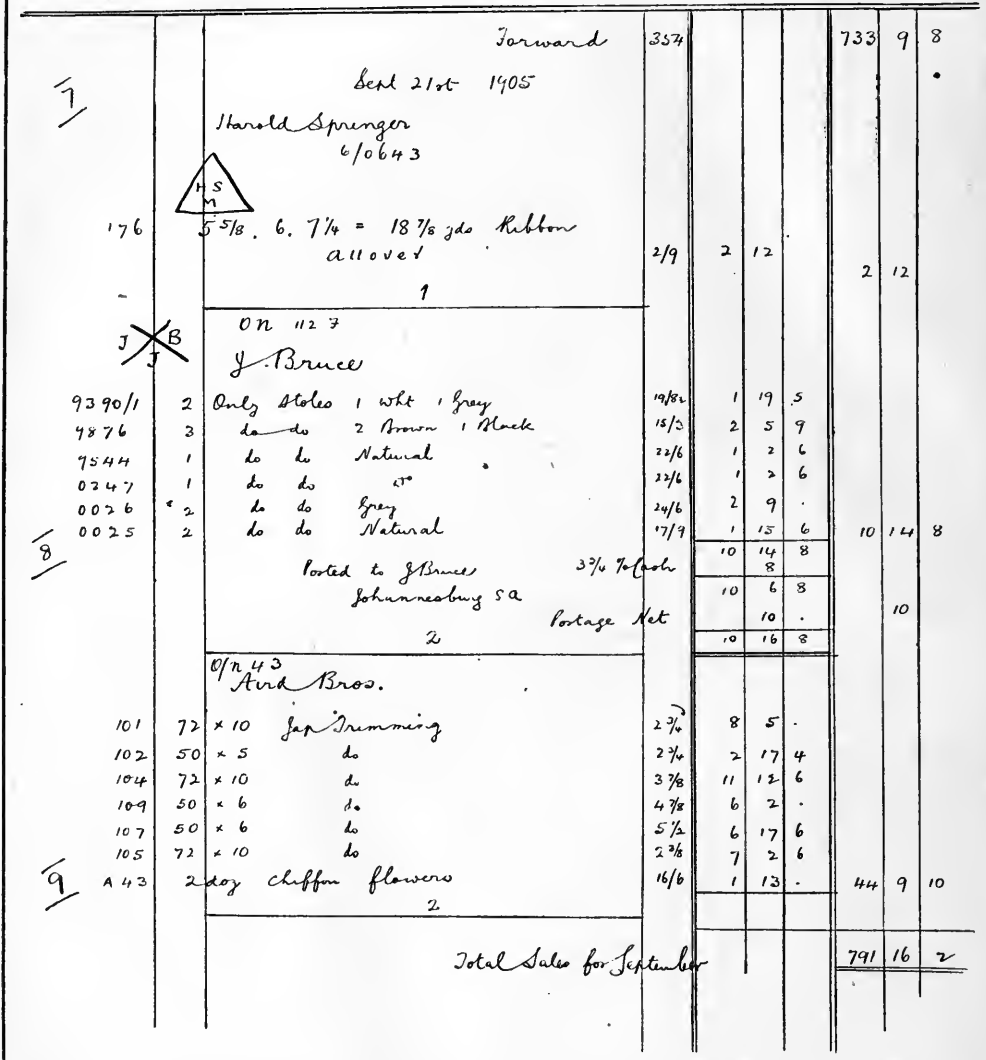 Forward 354 733 9 8
7
Sept 21st 1905
Harold Sprenger
6/0643
H S
M
176 5 5/8. 6. 7 1/4 = 18 7/8 yds Ribbon
allover 2/9 2 12
2 12
1
On 1127
J B
J
J. Bruce
9390/1 2 Only Stoles 1 wht 1 Grey 1 19 5
9876 3 do do 2 Brown 1 Black 15/3 2 5 9
9544 1 do do Natural 22/6 1 2 6
0247 1 do do do 22/6 1 2 6
0026 2 do do Grey 24/6 2 9 .
0025 2 do do Natural 17/9 1 15 6 10 14 8
8
10 14 8
Posted to J Bruce 3 3/4 % Cash 8
Johannesburg SA 10 6 8
10
Postage Net 10 .
2 10 16 8
O/n 43
Aird Bros.
101 72 × 10 Jap Trimming 2 3/4 8 5 .
102 50 × 5 do 2 3/4 2 17 4
104 72 × 10 do 3 7/8 11 12 6
109 50 × 6 do 4 7/8 6 2 .
107 50 × 6 do 5 1/2 6 17 6
105 72 × 10 do 2 3/8 7 2 6
9 A43 2 doz chiffon flowers 16/6 1 13 . 44 9 10
2
Total Sales for September 791 16 2